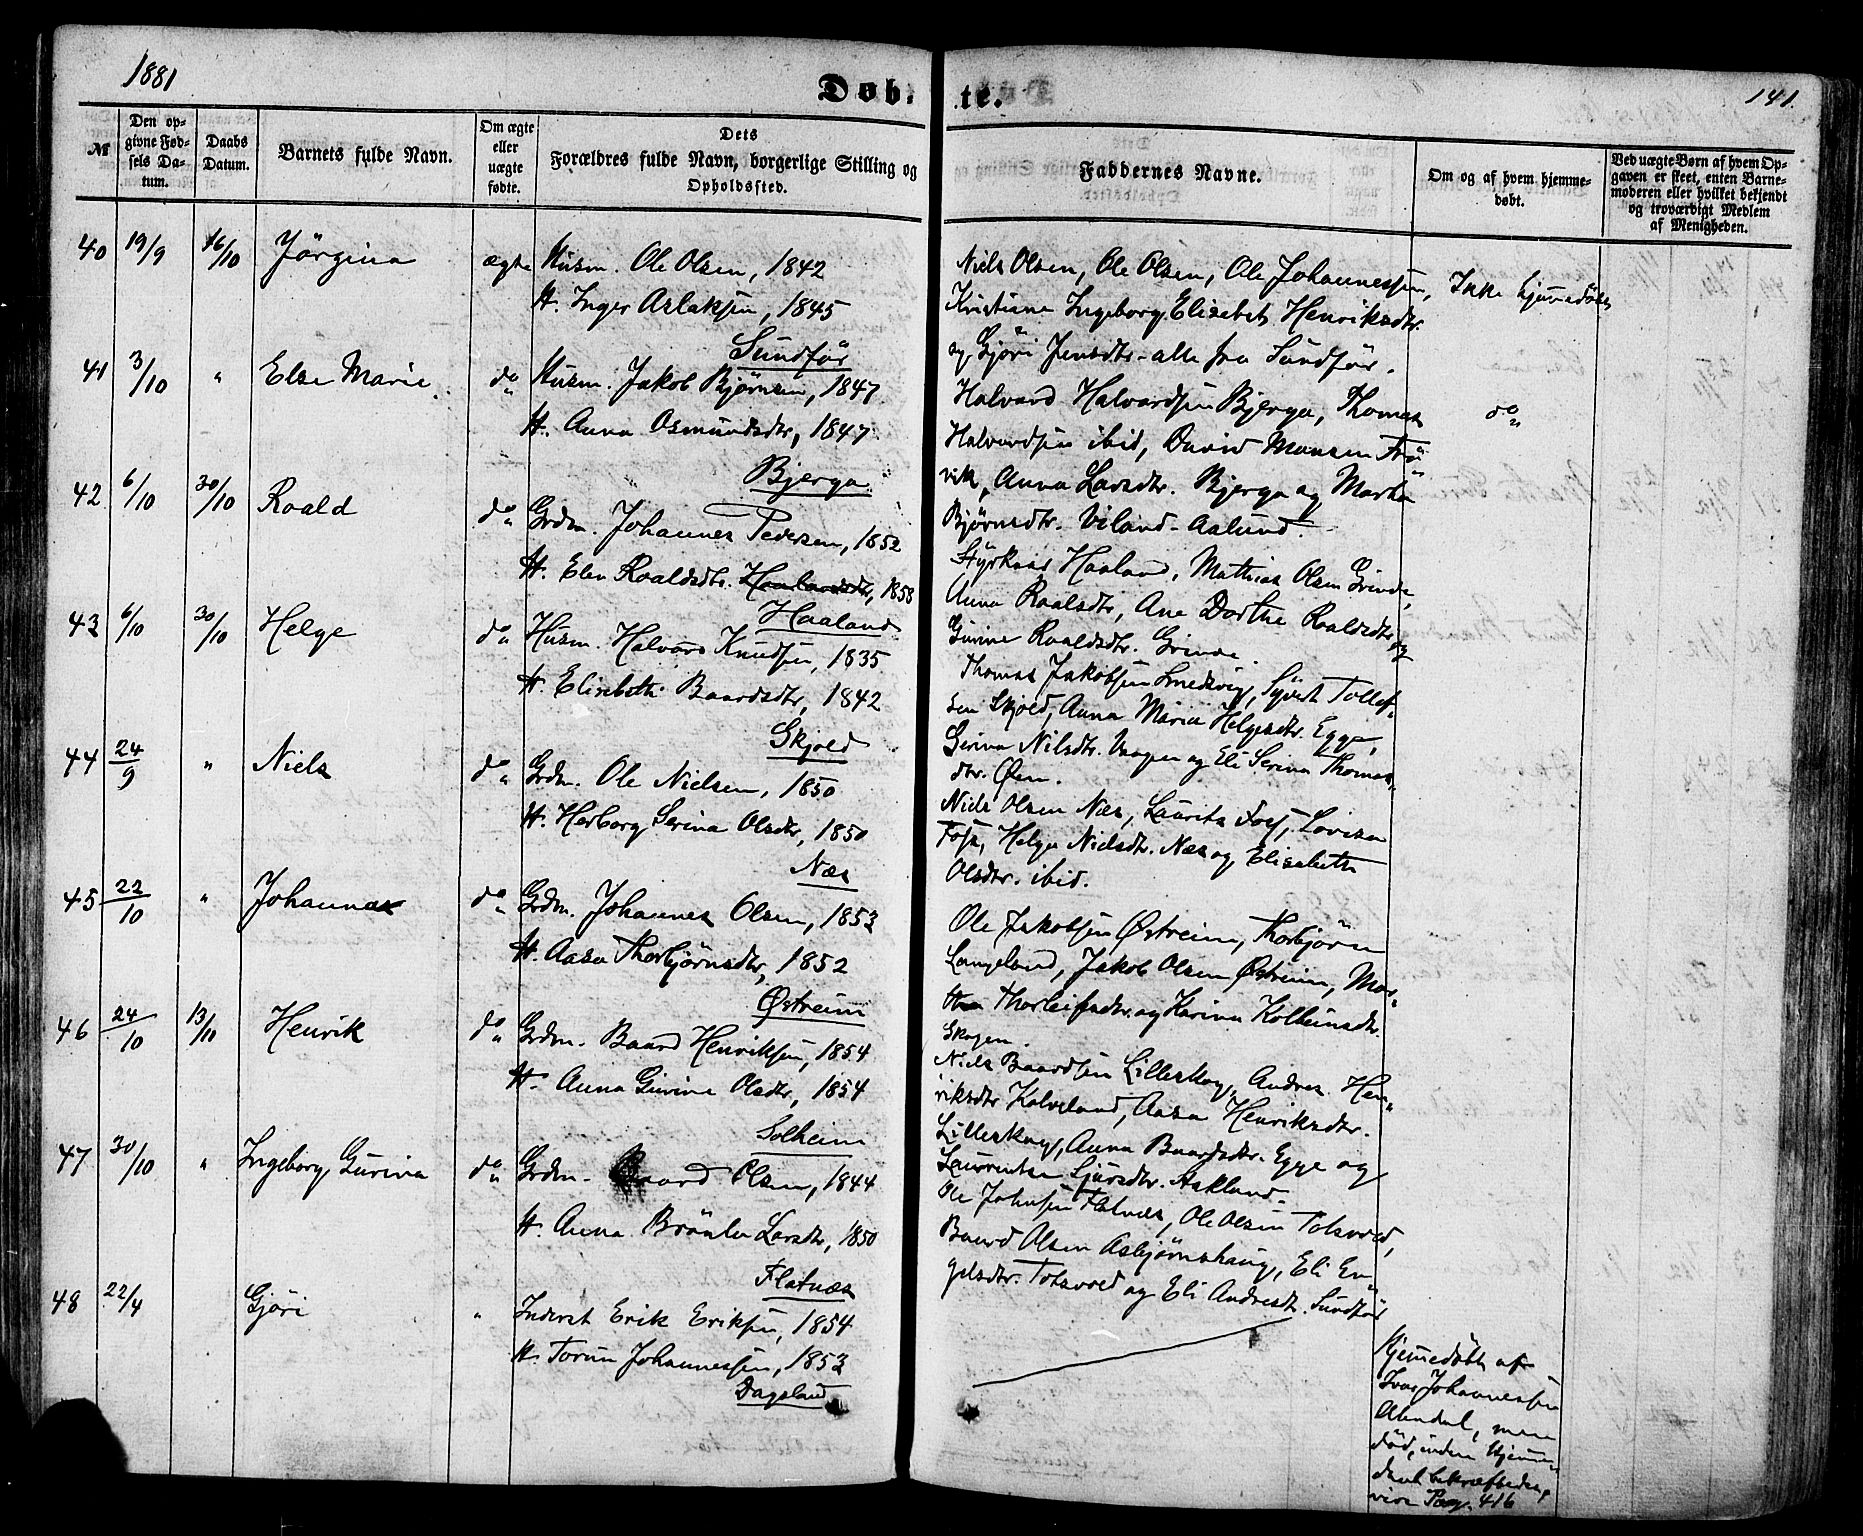 1881
Døb. te.
141.
M
Den op-
givne Fød-
sels Da-
tum.
Daabs
Datum.
Barnets fulde Navn.
Om ægte
eller
uægte
fødte.
Dets
Forældres fulde Navn, borgerlige Stilling og
Opholdssted.
Faddernes Navne.
Om og af hvem hjemme-
døbt.
Ved uægte Børn af hvem Op-
gaven er skeet, enten Barne-
moderen eller hvilket bekjendt
og troværdigt Medlem
af Menigheden.
40 19/9 16/10 Jörgina ægte Husm. Ole Olsen, 1842
H. Inger Aslaksen, 1845
Sundför
Niels Olsen, Ole Olsen, Ole Johannessen,
Kristiane Ingeborg, Elisebet Henriksdtr.
og Gjöri Jensdtr. alle fra Sundför.
Ikke hjemmedöbt
41 3/10 " Else Marie do Husm. Jakob Bjørnsen, 1847
H. Anna Osmundsdtr, 1847
Bjerga
Halvard Halvardsen Bjerga, Thomas
Halvardsen ibid, David Monsen Frö-
vik, Anna Larsdtr. Bjerga og Marta
Bjørnsdtr. Viland-Aalund.
do
42 6/10 30/10 Roald do Grdm. Johannes Pedersen, 1852
H. Elen Roaldsdtr. Haalandsdtr, 1858
Haaland
Styrkaar Haaland, Mathias Olsen Grinde,
Anna Roalsdtr, Ane Dorthe Roaldsdtr og
Gurine Roaldsdtr. Grinde.
43 6/10 30/10 Helge do Husm. Halvard Knudsen, 1835
H. Elisabeth Baardsdtr, 1842
Skjold
Thomas Jakobsen Smedsvig, Syvert Tollef-
sen Skjold, Anna Maria Helgesdtr. Egge,
Serina Nilsdtr. Vaagen og Eli Serina Thomas-
dtr. Øen.
44 24/9 " Niels do Grdm. Ole Nielsen, 1850
H. Herborg Serina Olsdtr, 1850
Næs
Niels Olsen Næs, Laurits Foss, Lovisa
Foss, Helga Nielsdtr. Næs og Elisabeth
Olsdtr. ibid.
45 22/10 " Johannes do Grdm. Johannes Olsen, 1853
H. Aasa Thorbjörnsdtr, 1852
Østreim
Ole Jakobsen Østreim, Thorbjörn
Langeland, Jakob Olsen Østreim, Mar-
tha Thorleifsdtr. og Karina Kolbeinsdtr.
Skogen.
46 24/10 13/10 Henrik do Grdm. Baard Henriksen, 1854
H. Anna Gurine Olsdtr, 1854
Solheim
Niels Baardsen Lilleskog, Andrea Hen-
riksdtr Kalveland, Aasa Henriksdtr.
Lilleskog, Anna Baardsdtr. Egge og
Laurentse Sjursdtr. Aaklund.
47 30/10 " Ingeborg Gurina do Grdm. Baard Olsen, 1844
H. Anna Brönla Larsdtr, 1850
Flatnæs
Ole Johnsen Flatnæs, Ole Olsen Totsvold,
Baard Olsen Asbjørnshaug, Eli En-
gelsdtr. Totsvold og Eli Andresdtr. Sundför
48 22/4 Gjöri " Inderst Erik Eriksen, 1854
H. Torun Johannessen, 1853
Dagsland
Hjemmedöbt af
Ivar Johannessen
Alendal, men
död, inden Hjemme-
daab bekræftedes,
vide Pag. 416